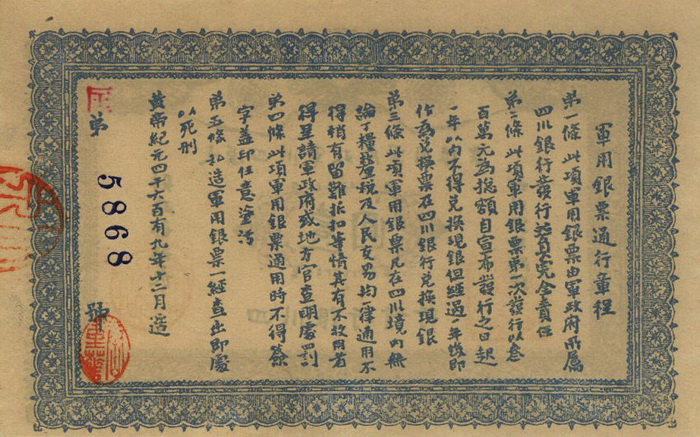 軍用銀票通行章程
第一條 此項軍用銀票由軍政府所屬
四川銀行發行並負完全責任
第二條 此項軍用銀票第一次發行以叁
百萬元為總額自宣布發行之日起
一年以內不得兌換現銀但經過一年後即
作為兌換票在四川銀行兌換現銀
第三條 此項軍用銀票凡在四川境內無
論丁糧釐稅及人民交易均一律通用不
得稍有留難折扣等情其有不放用者
得呈請軍政府或地方官查明處罰
第四條 此項軍用銀票通用時不得簽
字蓋印任意塗污
第五條 私造軍用銀票一經查出即處
以死刑
黃帝紀元四千六百有九年十二月造
第 5868 號